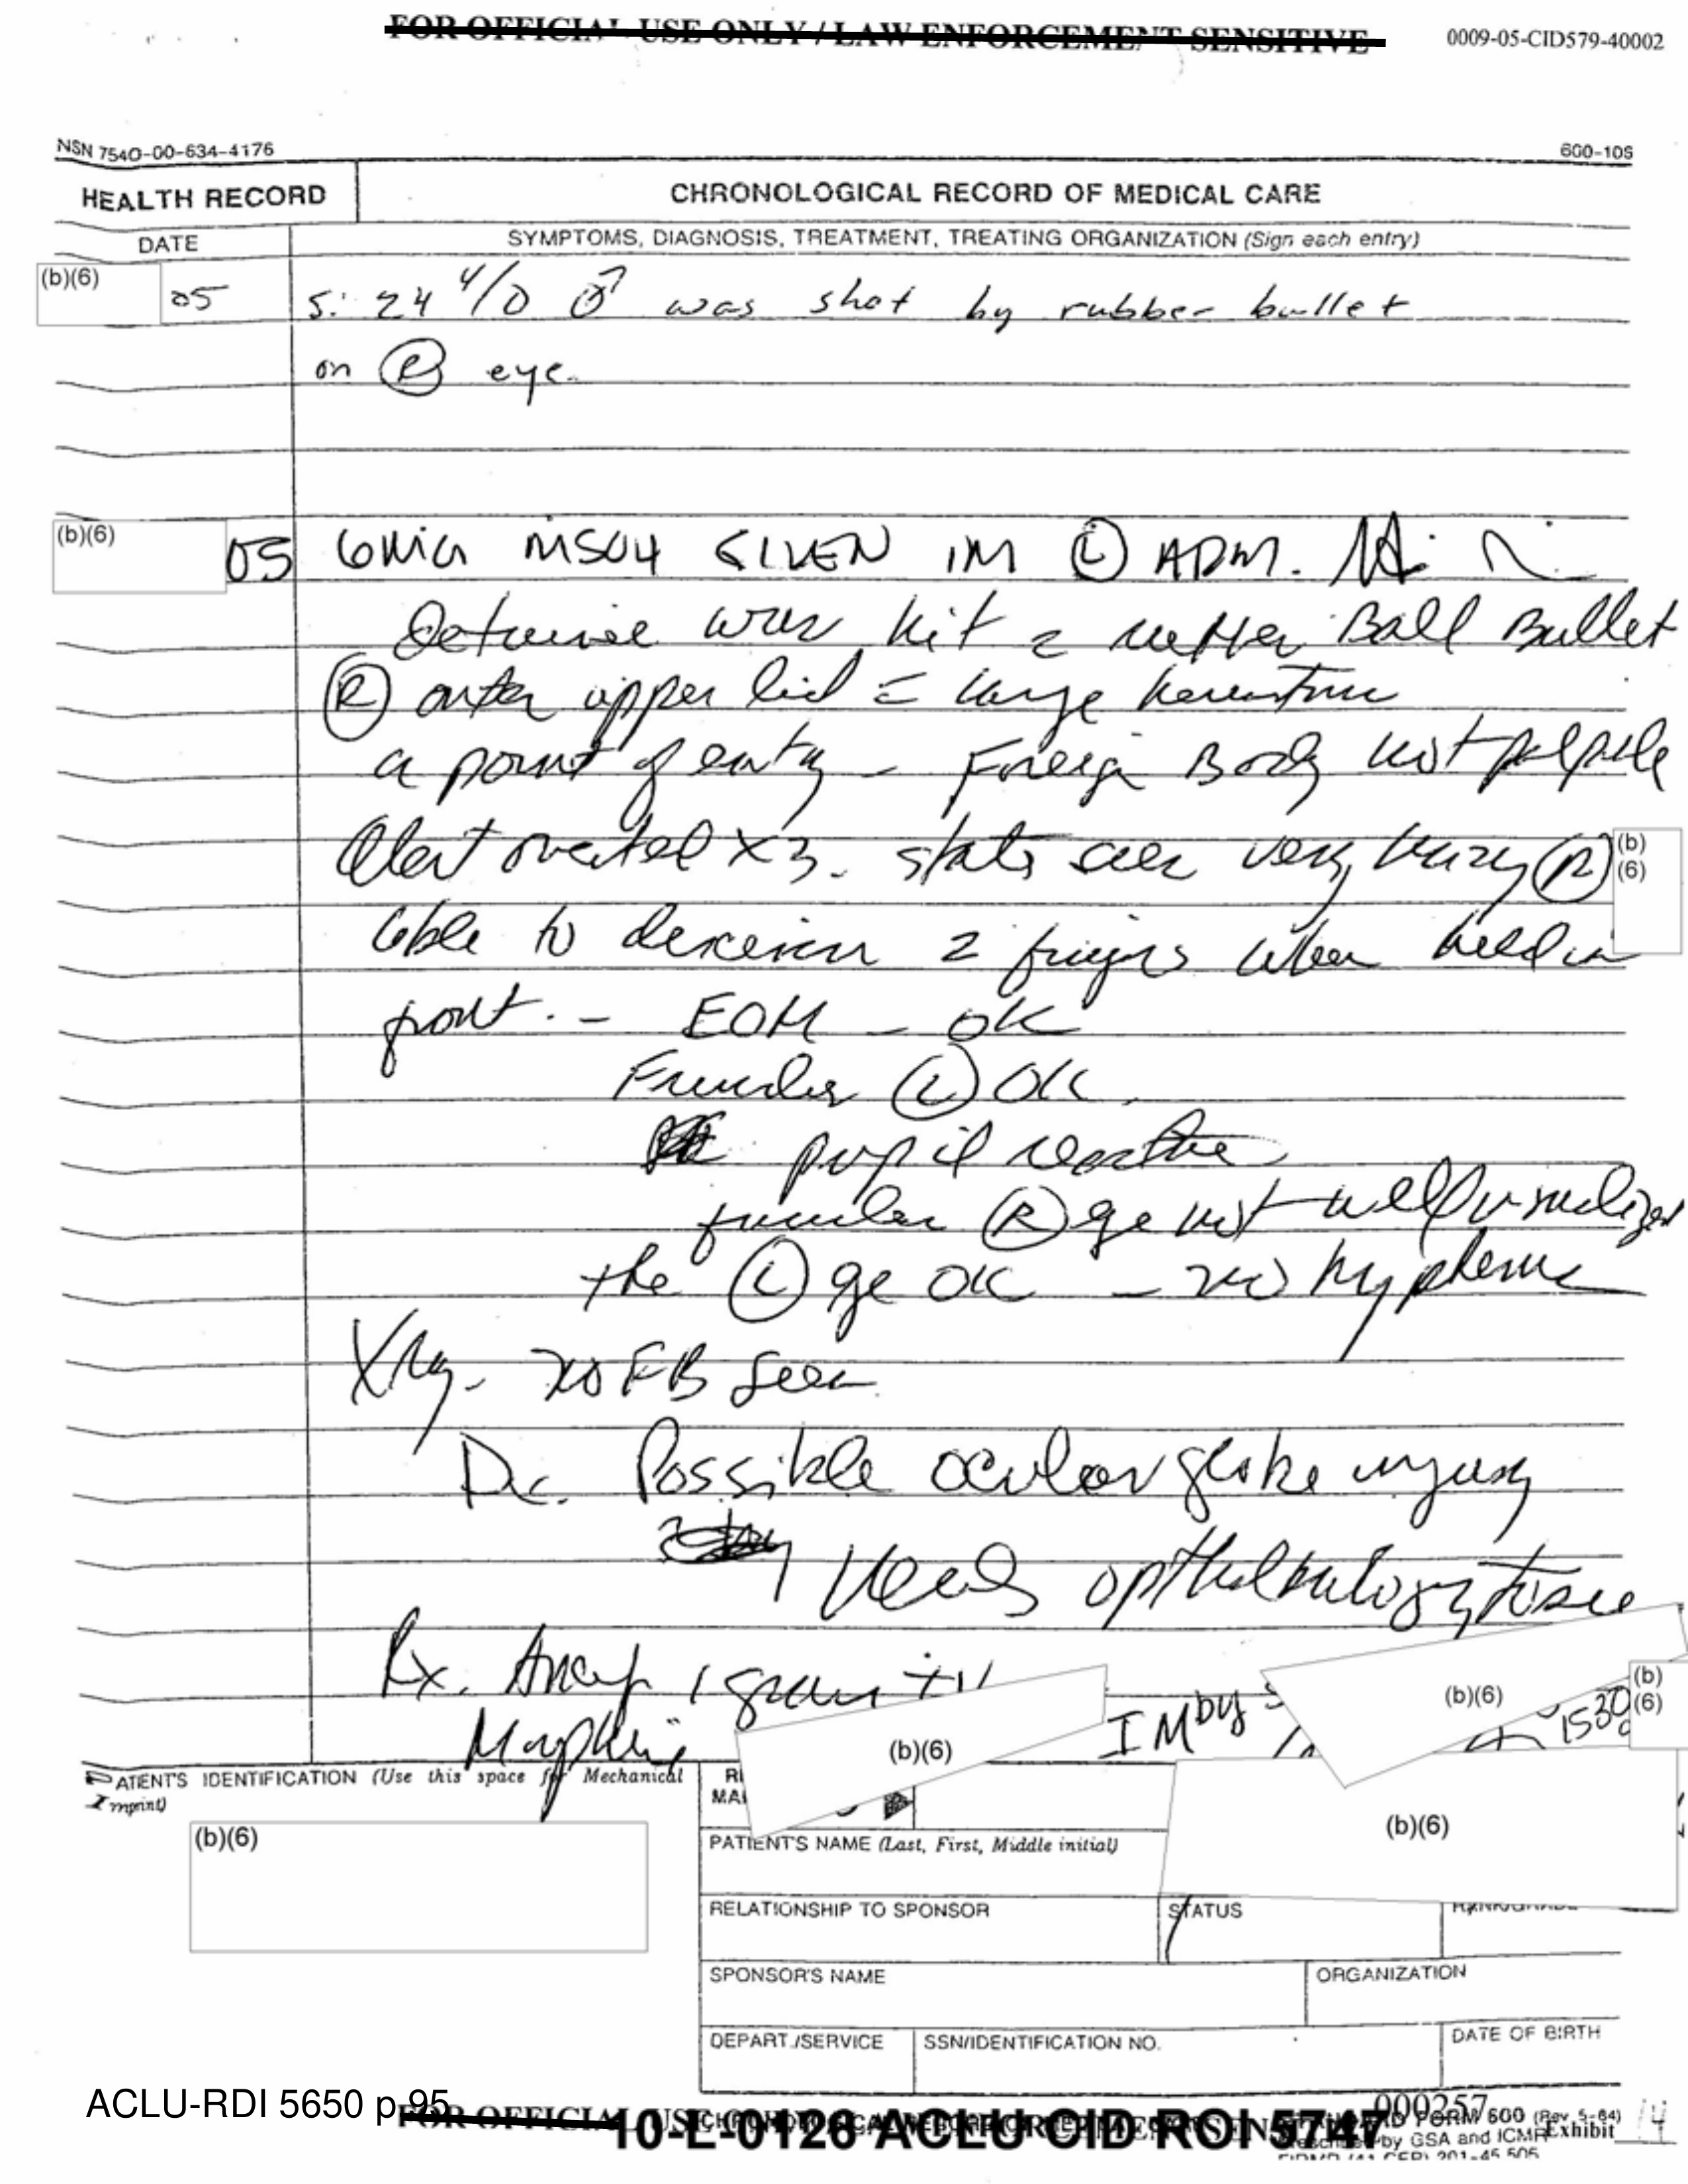 FOR OFFICIAL USE ONLY / LAW ENFORCEMENT SENSITIVE
0009-05-CID579-40002
NSN 7540-00-634-4176
600-108
HEALTH RECORD
CHRONOLOGICAL RECORD OF MEDICAL CARE
DATE
SYMPTOMS, DIAGNOSIS, TREATMENT, TREATING ORGANIZATION (Sign each entry)
(b)(6) 05 S: 24 y/o ♂ was shot by rubber bullet
on Ⓡ eye.
(b)(6) 05 6MG MSO4 GIVEN IM Ⓛ ARM.
Detainee was hit c rubber Ball Bullet
Ⓡ outer upper lid c large hematoma
a point of entry - Foreign Body not palpable
Alert oriented x3. states sees very blurry Ⓡ
(b)(6)
able to discern 2 fingers when held in
front. - EOM - OK
Fundus Ⓛ OK.
pupil reactive
fundus Ⓡ eye not well visualized
the Ⓛ eye OK - no hyphema
Xray - no FB seen
Dx. Possible ocular globe injury
Needs opthalmology to see
Rx. Ancef 1 gram
Morphine
IM by
1530
(b)(6)
(b)(6)
(b)(6)
PATIENT'S IDENTIFICATION (Use this space for Mechanical
Imprint)
(b)(6)
(b)(6)
PATIENT'S NAME (Last, First, Middle initial)
RELATIONSHIP TO SPONSOR
STATUS
RANK/GRADE
SPONSOR'S NAME
ORGANIZATION
DEPART./SERVICE
SSN/IDENTIFICATION NO.
DATE OF BIRTH
ACLU-RDI 5650 p.95
FOR OFFICIAL USE
10-L-0126 ACLU CID ROI 5747
000257
STANDARD FORM 600 (Rev. 5-84)
Prescribed by GSA and ICMR
Exhibit 14
FIRMR (41 CFR) 201-45.505